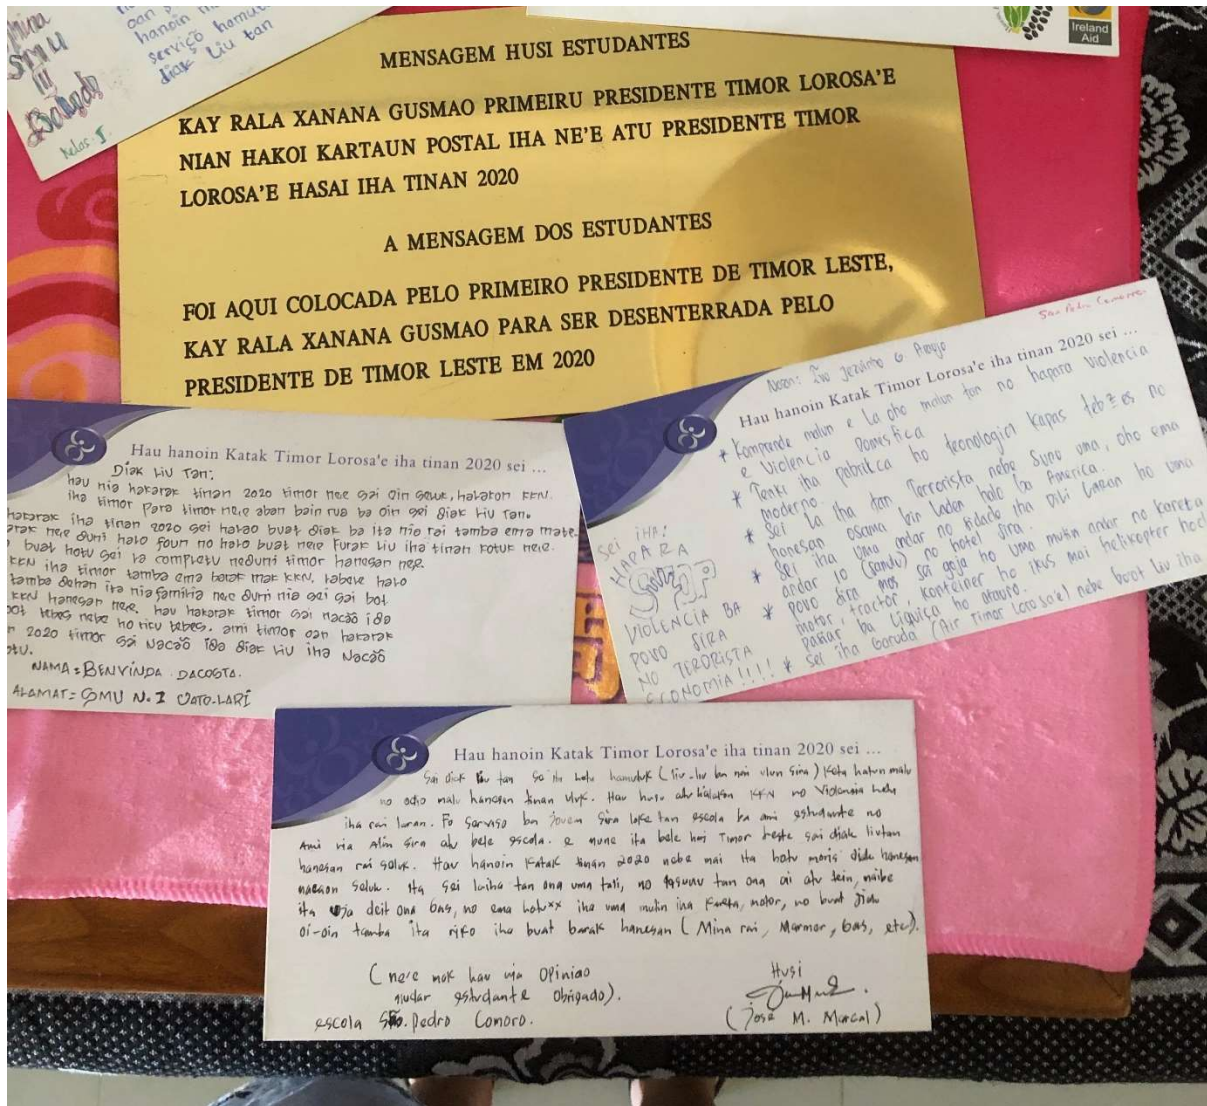 oan
hanoin
serviçõ hamutu
diak Liu tan
mina
SMU
III
Balide
Kelas: I
Ireland
Aid
MENSAGEM HUSI ESTUDANTES
KAY RALA XANANA GUSMAO PRIMEIRU PRESIDENTE TIMOR LOROSA'E
NIAN HAKOI KARTAUN POSTAL IHA NE'E ATU PRESIDENTE TIMOR
LOROSA'E HASAI IHA TINAN 2020
A MENSAGEM DOS ESTUDANTES
FOI AQUI COLOCADA PELO PRIMEIRO PRESIDENTE DE TIMOR LESTE,
KAY RALA XANANA GUSMAO PARA SER DESENTERRADA PELO
PRESIDENTE DE TIMOR LESTE EM 2020
Hau hanoin Katak Timor Lorosa'e iha tinan 2020 sei ...
Diak Liu Tan:
hau nia hakarak tinan 2020 timor nee sai oin seluk, halakon KKN.
iha timor Para timor neie aban bain rua ba oin sei diak Liu Tan.
hakarak iha tinan 2020 sei halao buat diak ba ita nia rai tamba ema mate.
neie duni halo foun no halo buat neie Furak Liu iha tinan kotuk neie.
buat hotu sai la completu neduni timor hanesan neie.
KKN iha timor tamba ema barak mak KKN, labele halo
tamba dehan ita nia familia neie duni nia sai sai bot
KKN hanesan neie. hau hakarak timor sai nacaõ ida
bot tebes nebe ho ricu tebes, ami timor oan hakarak
2020 timor sai Nacaõ ida diak Liu iha Nacaõ
NAMA: BENVINDA DACOSTA.
ALAMAT: SMU N. I UATO-LARI
San Pedro Comoro
Naran: Jezinho G Araujo
Hau hanoin Katak Timor Lorosa'e iha tinan 2020 sei ...
* Komprende malun e la oho malun tan no hapara Violencia
e Violencia Domestica
* Tenki iha pabrica ho teonologia kapas teb=es no
moderno.
* Sei la iha tan Terrorista nebe Sunu uma, oho ema
hanesan osama bin laden halo ba America.
* Sei iha uma andar no cidade iha Dili Laran ho uma
andar 10 (sanulu) no hotel sira.
* povo sira mos sei goja ho uma mutin andar no kareta
motor, tractor, konteiner ho ikus mai helikopter hodi
pasiar ba Liquiça ho atauro.
* Sei iha Garuda (Air Timor Lorosa'e) nebe boot liu iha
SEI IHA!
HAPARA
STOP
VIOLENCIA BA
POVO SIRA
NO TERORISTA
ECONOMIA!!!!
Hau hanoin Katak Timor Lorosa'e iha tinan 2020 sei ...
Sai diak liu tan So ita hotu hamutuk (liu-liu ba nai ulun Sira) Keta hatun malu
no odio malu hanesan tinan uluk. Hau husu atu halakon KKN no Violensia hotu
iha rai laran. Fo Servisu ba Jovem Sira loke tan escola ba ami estudante no
Ami nia Alin Sira atu bele escola. e nune ita bele hoi Timor Leste sai diak liutan
hanesan rai seluk. Hau hanoin Katak tinan 2020 nebe mai ita hotu moris diak hanesan
nasaon seluk. Ita sei laiha tan ona uma tali, no tan ona ai atu tein, naibe
ita uja deit ona Gas, no ema hotu** iha uma mutin iha kareta, motor, no buat
oi-oin tamba ita riko iha buat barak hanesan (Mina rai, Marmor, Gas, etc).
(ne'e mak hau nia Opiniao
nudar estudante Obrigado).
escola São. Pedro Comoro.
Husi
(Jose M. Marcal)